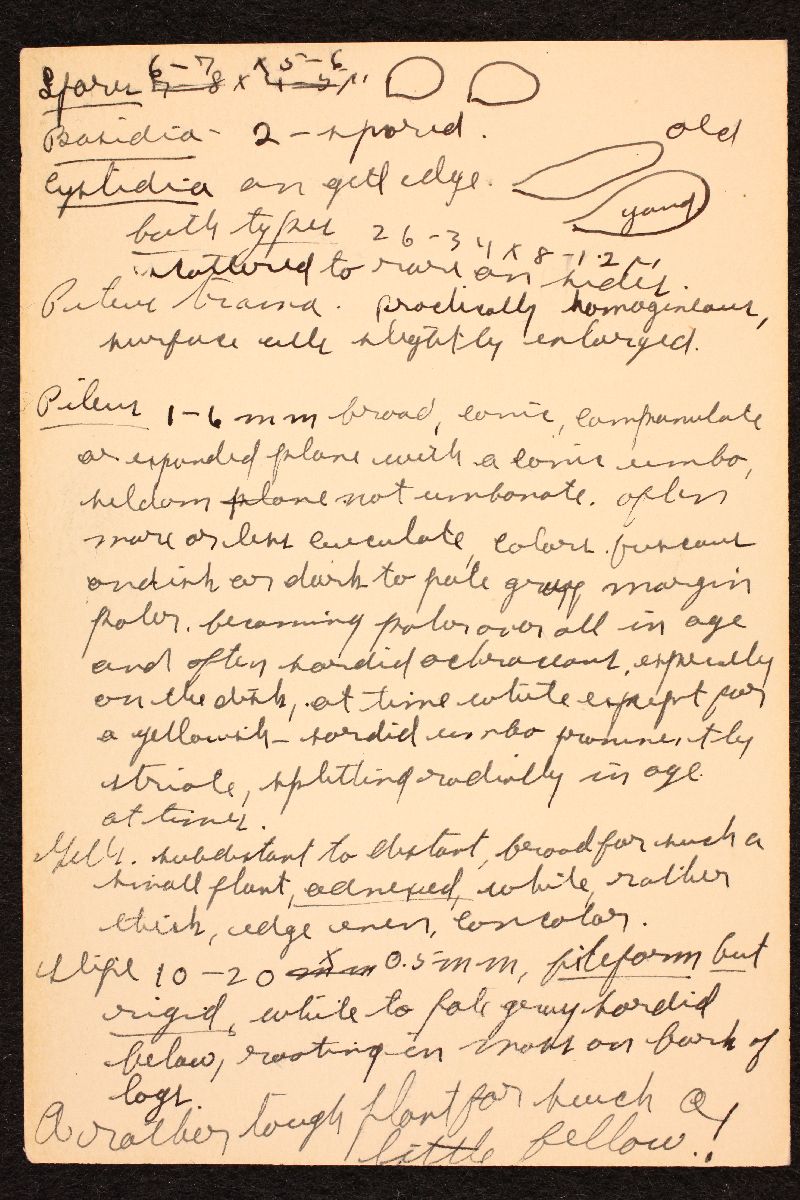 Spores 6-7 x 5-6
7-8 x 4-5 µ
Basidia - 2-spored.
old
Cystidia on gill edge.
young
both types 26-34 x 8-12 µ,
scattered to rare on sides.
Pileus trama. practically homogineous,
surface cells slightly enlarged.
Pileus 1-6 mm broad, conic, campanulate
or expanded plane with a conic umbo,
seldom plane not umbonate. often
more or less cucullate, colors fuscous
on disk or dark to pale gray margin
paler. becoming paler over all in age
and often sordid ochraceous, especially
on the disk, at time white except for
a yellowish-sordid umbo prominently
striate, splitting radially in age
at times.
Gills. subdistant to distant, broad for such a
small plant, adnexed, white, rather
thick, edge even, concolor.
Stipe 10-20 mm x 0.5 mm, filiform but
rigid, white to pale gray sordid
below, rooting in moss on bark of
logs.
A rather tough plant for such a
little fellow!